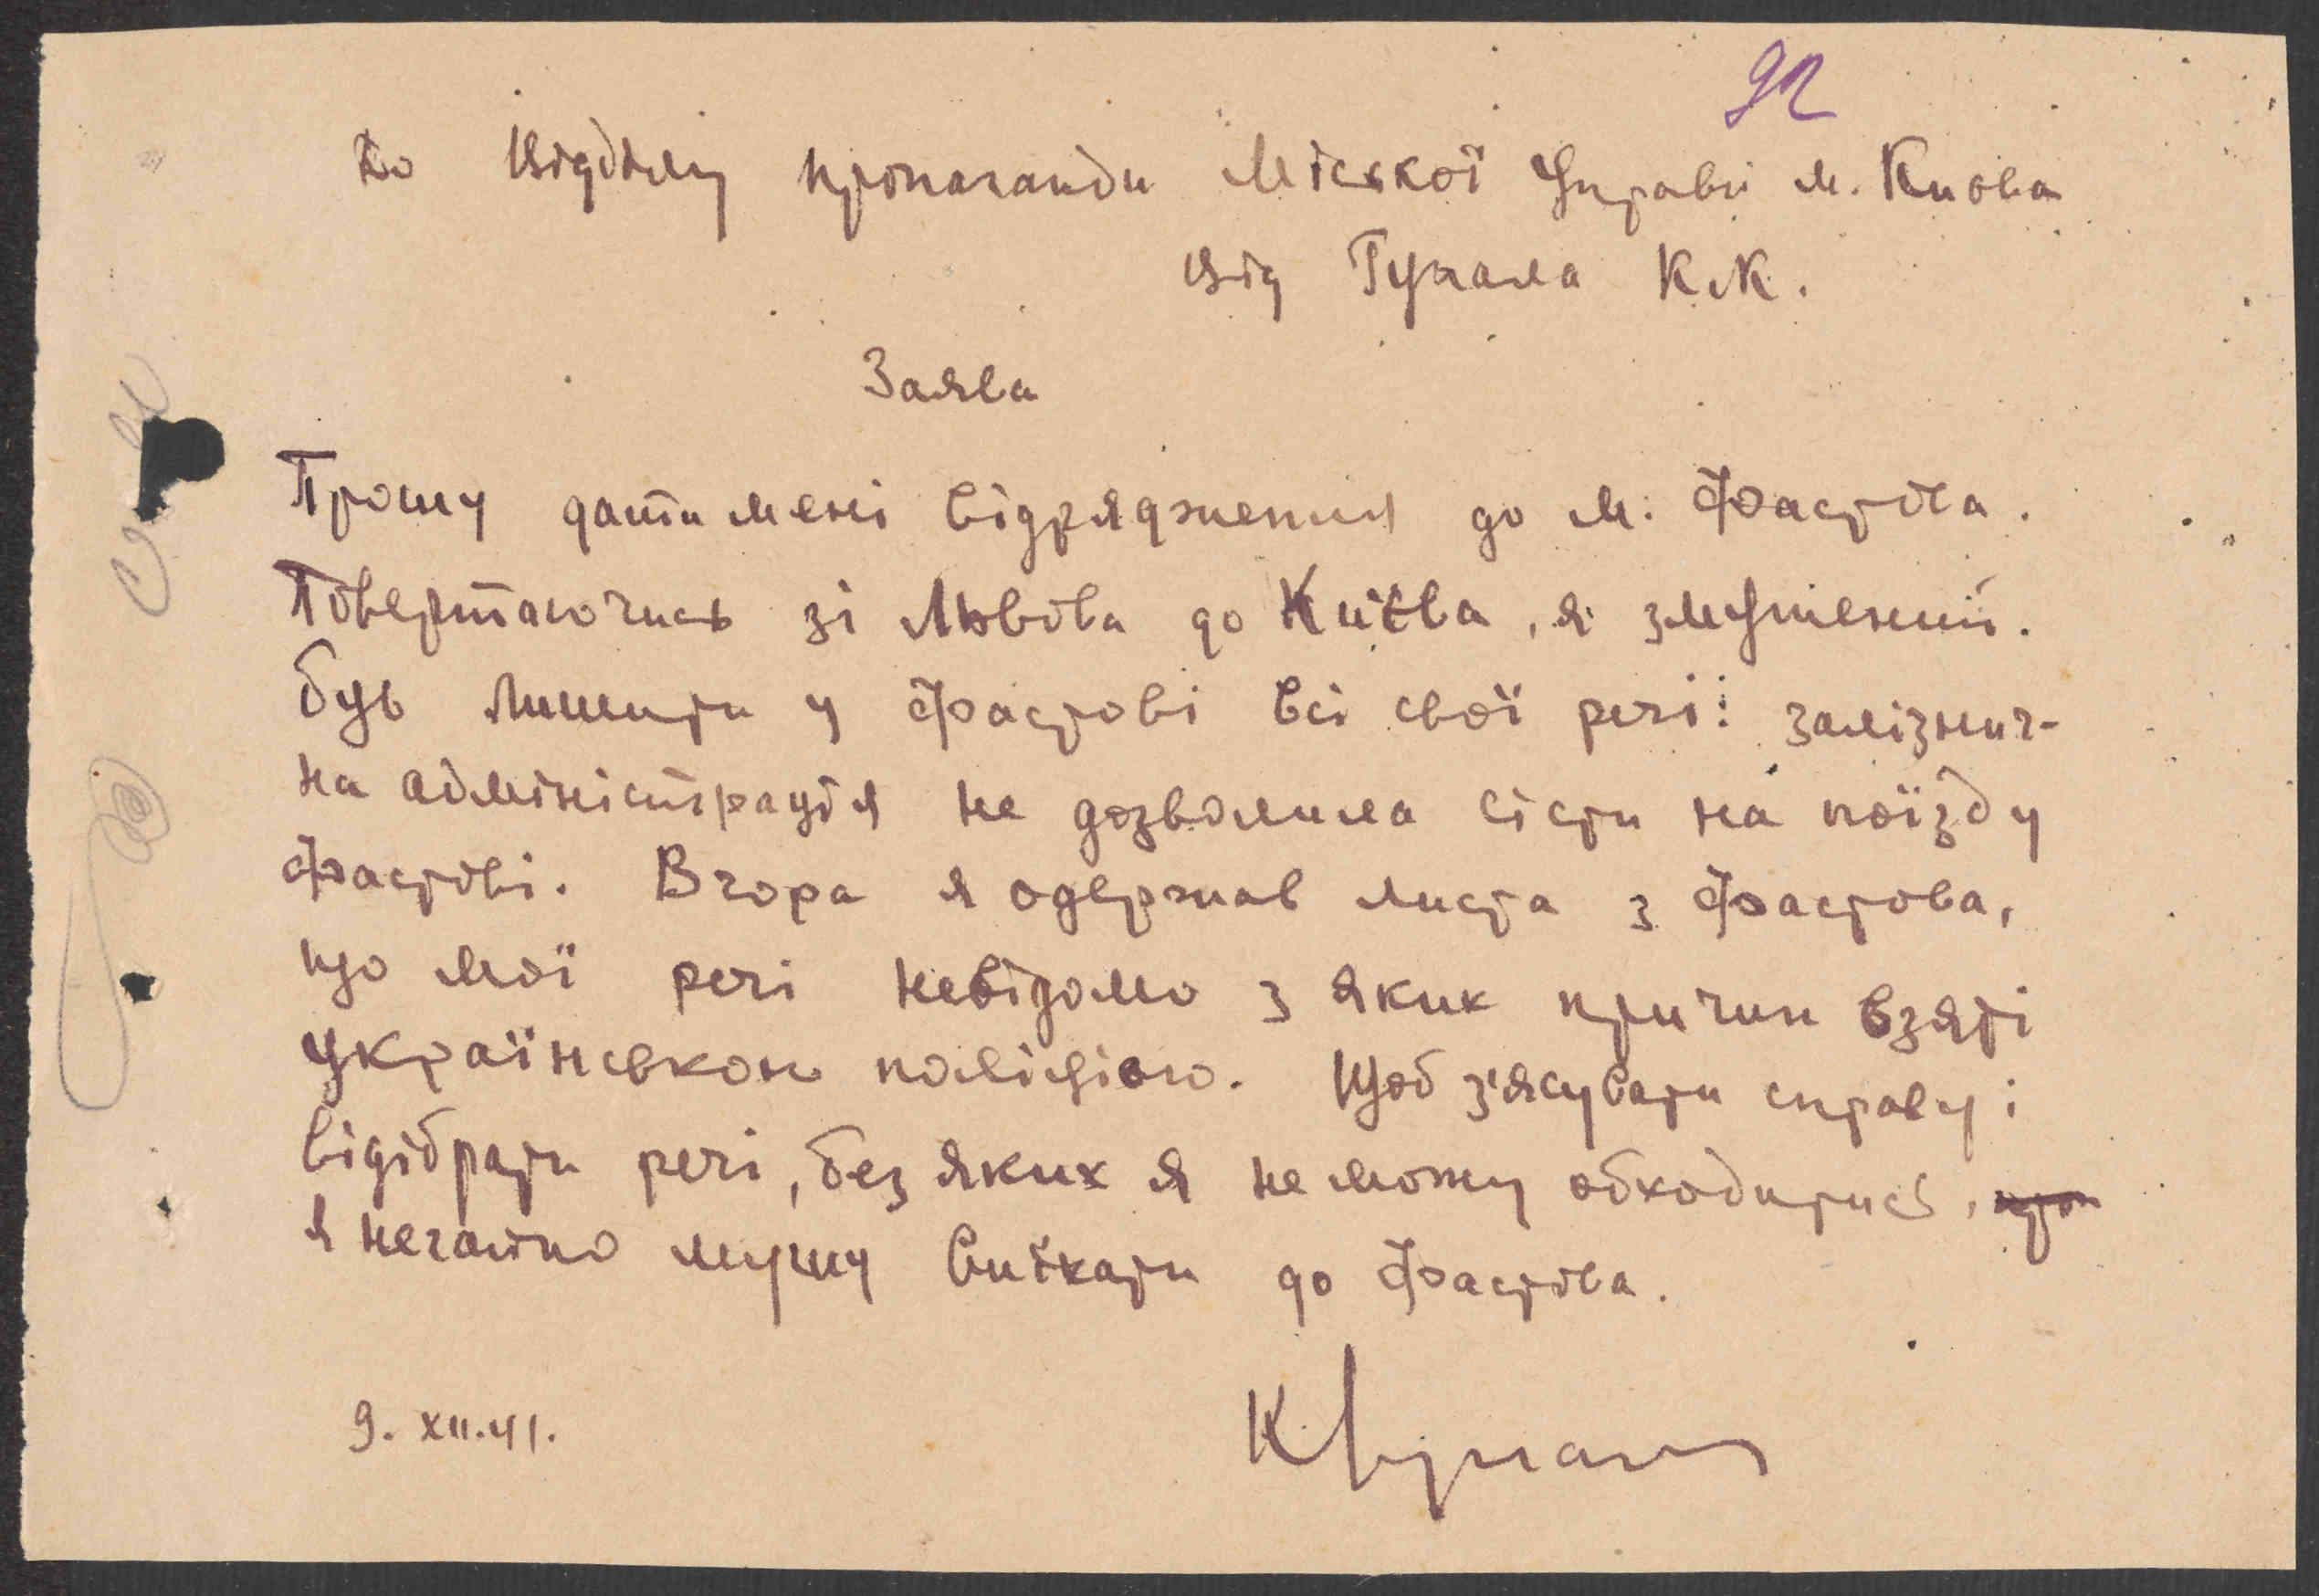 92
До Відділу пропаганди Міської Управи м. Києва
Від Гупала К.К.
Заява
Прошу дати мені відрядження до м. Фастова.
Повертаючись зі Львова до Києва, я змушений
був лишити у Фастові всі свої речі: залізнич-
на адміністрація не дозволила сісти на поїзд у
Фастові. Вчора я одержав листа з Фастова,
що мої речі невідомо з яких причин взяті
українською поліцією. Щоб з'ясувати справу і
відібрати речі, без яких я не можу обходитись,
я негайно мушу виїхати до Фастова.
9.XII.41. КГупало